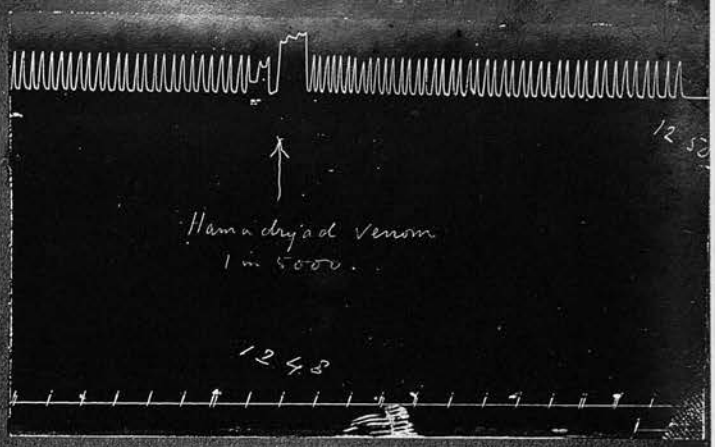 12 52
Hamadryad venom
1 in 5000.
1248